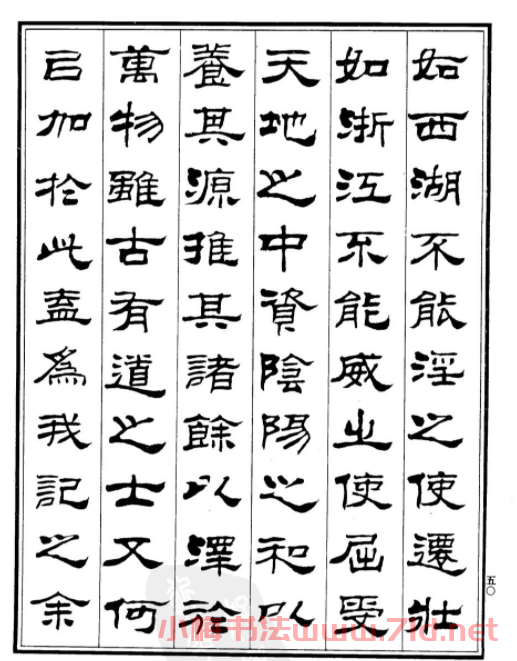 如西湖不能淫之使遷壯
如浙江不能威之使屈受
天地之中資陰陽之和以
養其源推其諸餘以澤於
萬物雖古有道之士又何
以加於此盍爲我記之余
五〇
小梅书法www.7ld.net